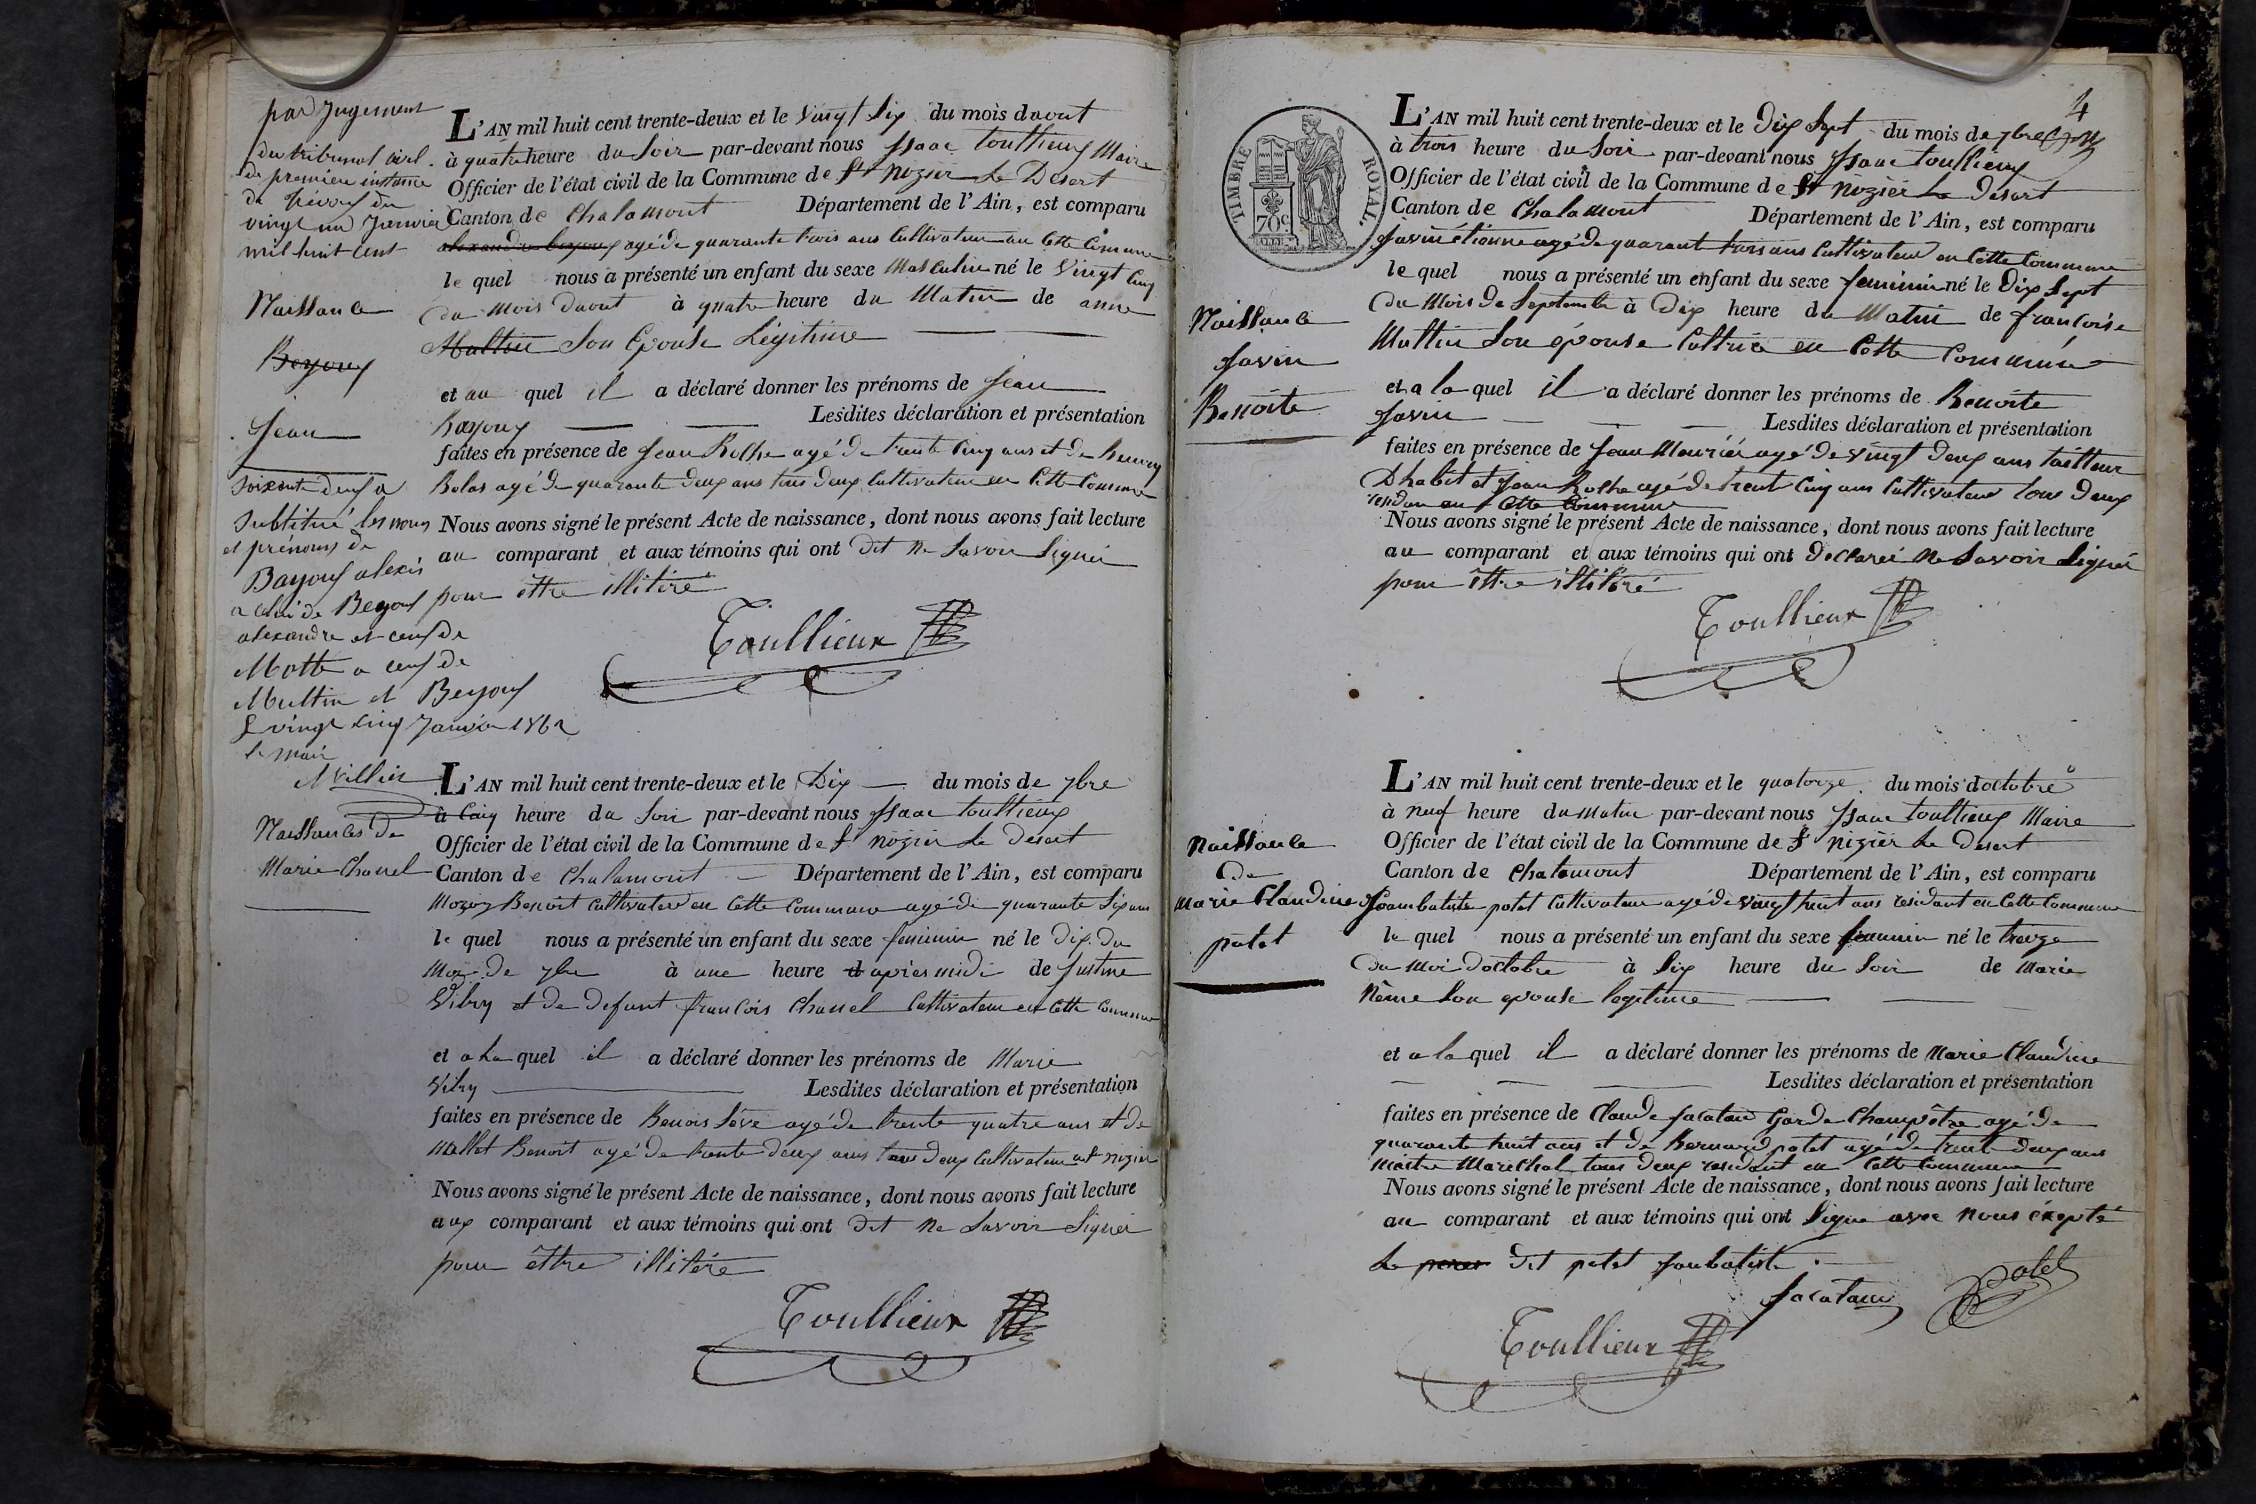 par Jugement
du tribunal civil
de première instance
de Trévoux du
vingt un Janvier
mil huit cent
Naissance
Beyoux
Jean
Soixante deux a
substitué les noms
et prénoms de
Bayoux alexis
a celui de Beyoux
alexandre et ceux de
Motte a ceux de
Multin et Beyoux
le vingt cinq Janvier 1862
le maire
Villier
L'AN mil huit cent trente-deux et le vingt Six du mois daout
à quatre heure du Soir par-devant nous Isaac toullieux Maire
Officier de l'état civil de la Commune de St nizier Le Desert
Canton de Chalamont Département de l'Ain, est comparu
alexandre beyoux agé de quarante trois ans Cultivateur en Cette Commune
le quel nous a présenté un enfant du sexe Masculin né le vingt Cinq
du Mois daout à quatre heure du Matin de anne
Multin Son Epouse Légitime
et au quel il a déclaré donner les prénoms de Jean
bayoux Lesdites déclaration et présentation
faites en présence de Jean Rothe agé de trente Cinq ans et de
Bolas agé de quarante deux ans tous deux Cultivateur en Cette Commune
Nous avons signé le présent Acte de naissance, dont nous avons fait lecture
au comparant et aux témoins qui ont dit ne Savoir Signér
pour êttre illitiré
Toullieux
Naissances de
Marie Chanel
L'AN mil huit cent trente-deux et le Dix du mois de 7bre
à Cinq heure du Soir par-devant nous Isaac toullieux
Officier de l'état civil de la Commune de St nizier Le Desert
Canton de Chalamont Département de l'Ain, est comparu
Benoit Cultivateur en Cette Commune agé de quarante Six ans
le quel nous a présenté un enfant du sexe feminin né le dix du
Moi de 7bre à une heure d apriès midi de Justine
Vibry et de defunt françois Chanel Cultivateur en Cette Commune
et a La quel il a déclaré donner les prénoms de Marie
Vibry Lesdites déclaration et présentation
faites en présence de Benois Séve agé de trente quatre ans et de
Mallet Benoit agé de trente deux ans tous deux Cultivateur a St nizier
Nous avons signé le présent Acte de naissance, dont nous avons fait lecture
aux comparant et aux témoins qui ont dit ne Savoir Signér
pour êttre illitére
Toullieux
4
TIMBRE ROYAL
70c.
Naissance
Javin
Benoite
L'AN mil huit cent trente-deux et le Dix Sept du mois de 7bre
à trois heure du Soir par-devant nous Isaac toullieux
Officier de l'état civil de la Commune de St Nizier Le Desert
Canton de Chalamont Département de l'Ain, est comparu
Javin étienne agé de quarant trois ans Cultivateur en Cette Commune
le quel nous a présenté un enfant du sexe feminin né le Dix Sept
du Mois de Septembre à Dix heure du Matin de françoise
Multin Son épouse Cultrice en Cette Commune
et a la quel il a déclaré donner les prénoms de Benoite
Javin Lesdites déclaration et présentation
faites en présence de Jean Mouriér agé de vingt deux ans tailleur
Dhabit et Jean Rothe agé de trent Cinq ans Cultivateur tous deux
residan en Cette Commune
Nous avons signé le présent Acte de naissance, dont nous avons fait lecture
au comparant et aux témoins qui ont declaré ne Savoir Signér
pour êttre illitéré
Toullieux
Naissance
de
Marie Claudine
potet
L'AN mil huit cent trente-deux et le quatorze du mois doctobre
à neuf heure du Matin par-devant nous Isaac toullieux Maire
Officier de l'état civil de la Commune de St nizier Le Desert
Canton de Chalamont Département de l'Ain, est comparu
Jeambatiste potet Cultivateur agé de vingt huit ans residant en Cette Commune
le quel nous a présenté un enfant du sexe feminin né le treize
du Moi doctobre à Six heure du Soir de Marie
Nême Son epouse legitime
et a la quel il a déclaré donner les prénoms de Marie Claudine
Lesdites déclaration et présentation
faites en présence de Claude Jacatau Garde Champêtre agé de
quarante huit ans et de Bernard potet agé de trent deux ans
Maitre Marechal tous deux residant en Cette Commune
Nous avons signé le présent Acte de naissance, dont nous avons fait lecture
au comparant et aux témoins qui ont Signé avec nous éxepté
Le dit potet Janbatiste
Jacatau Potet
Toullieux